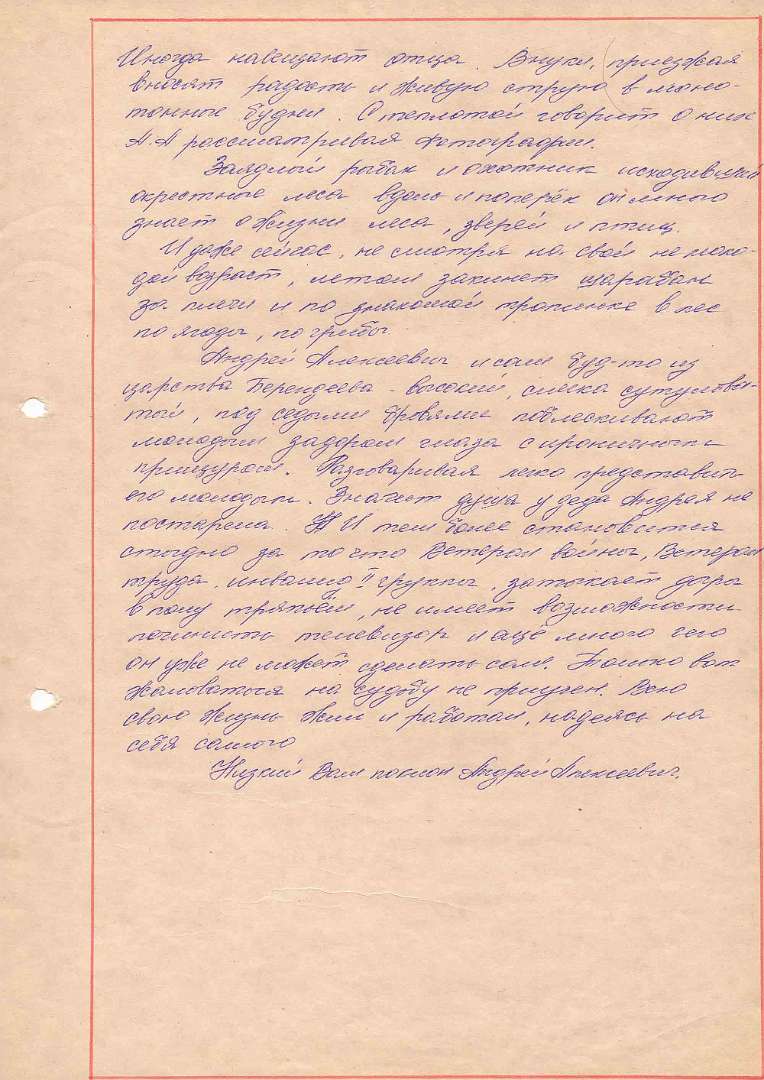 Иногда навещают отца. Внуки, приезжая
вносят радость и живую струю в моно-
тонные будни. С теплотой говорит о них
А.А рассматривая фотографии.
Заядлый рыбак и охотник исходивший
окрестные леса вдоль и поперёк он много
знает о жизни леса, зверей и птиц.
И даже сейчас, не смотря на свой не моло-
дой возраст, летом закинет шарабан
за плечи и по знакомой тропинке в лес
по ягоды, по грибы.
Андрей Алексеевич и сам буд-то из
царства Берендеева - высокий, слегка сутулова-
тый, под седыми бровями поблескивают
молодым задором глаза с ироничным
прищуром. Разговаривая легко представить
его молодым. Значит душа у деда Андрея не
постарела. И тем более становится
стыдно за то что Ветеран войны, Ветеран
труда, инвалид II группы, затыкает дыры
в полу тряпьём, не имеет возможности
починить телевизор и ещё много чего
он уже не может сделать сам. Только вот
жаловаться на судьбу не приучен. Всю
свою жизнь жил и работал, надеясь на
себя самого
Низкий Вам поклон Андрей Алексеевич.